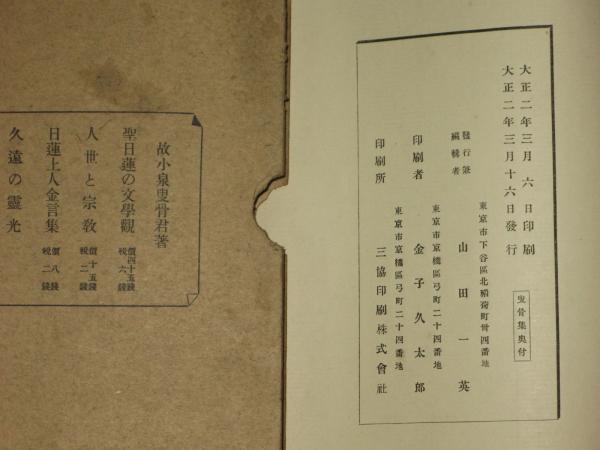 大正二年三月六日印刷
大正二年三月十六日發行
曳骨集奥付
東京市下谷區北稲荷町卅四番地
發行兼
編輯者
山田一英
東京市京橋區弓町二十四番地
印刷者
金子久太郎
東京市京橋區弓町二十四番地
印刷所
三協印刷株式會社
故小泉曳骨君著
聖日蓮の文學觀
價四十五錢
税六錢
人世と宗教
價十五錢
税二錢
日蓮上人金言集
價八錢
税二錢
久遠の靈光